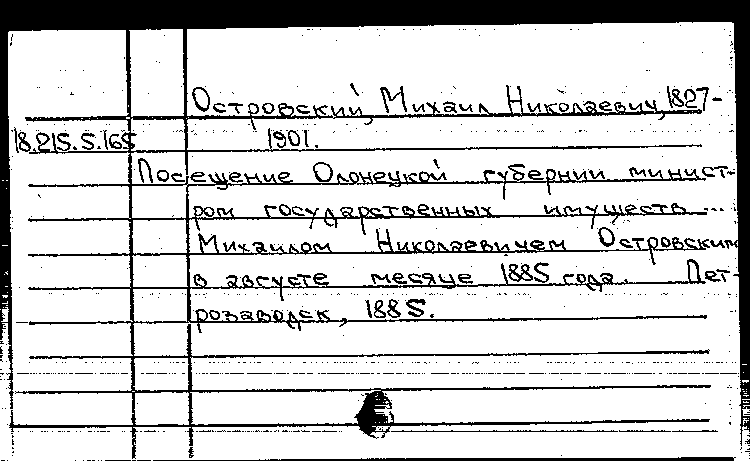 Островский, Михаил Николаевич, 1827-
18.215.5.165 1901.
Посещение Олонецкой губернии минист-
ром государственных имуществ ...
Михаилом Николаевичем Островским
в августе месяце 1885 года. Пет-
розаводск, 1885.